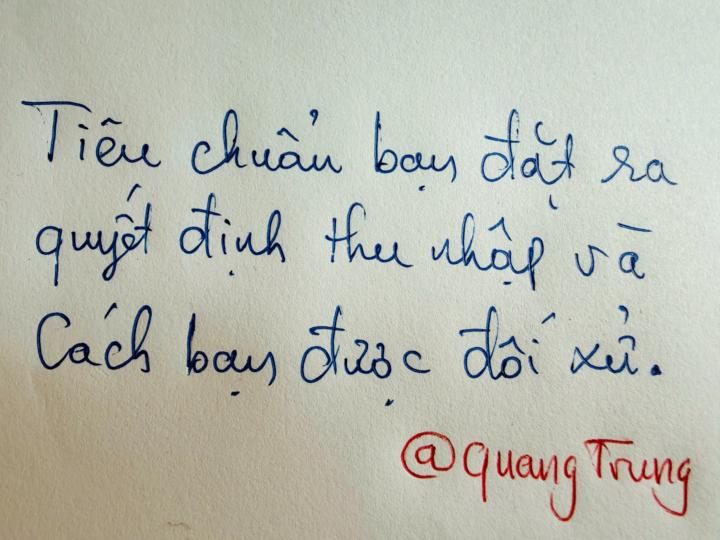 Tiêu chuẩn bạn đặt ra
quyết định thu nhập và
Cách bạn được đối xử.
@QuangTrung